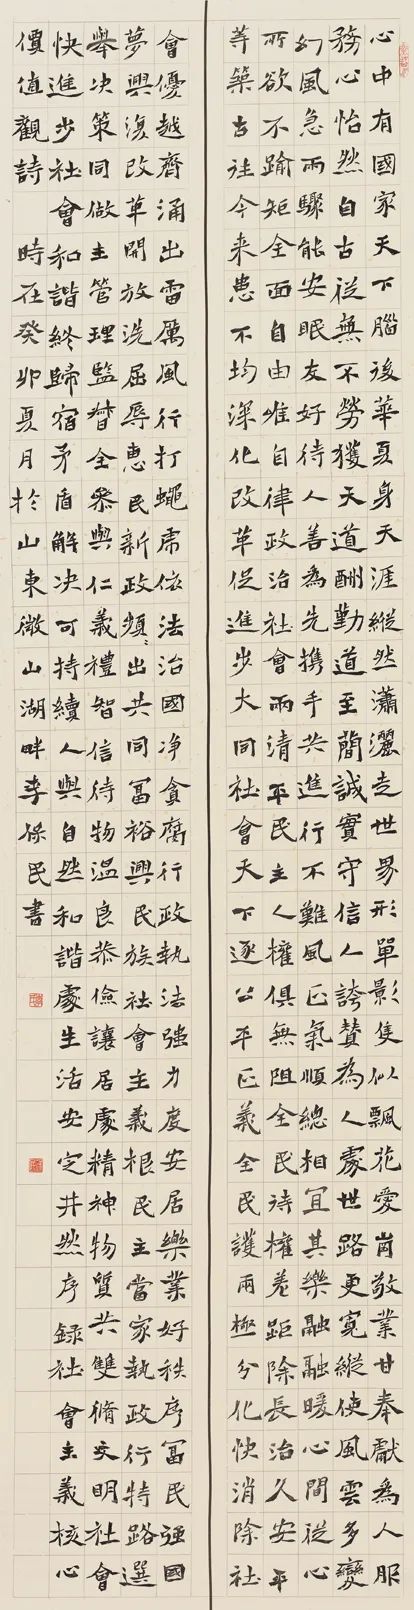 心中有國家天下腦後華夏身天涯縱然瀟灑走世界形單影隻似飄花愛崗敬業甘奉獻為人服
務心怡然自古從無不勞獲天道酬勤道至簡誠實守信人誇贊為人處世路更寬縱使風雲多變
幻風急雨驟能安眠友好待人善為先携手共進行不難風正氣順總相宜其樂融融暖心間從心
所欲不踰矩全面自由唯自律政治社會兩清平民主人權俱無阻全民詩權差距除長治久安平
等築古往今来患不均深化改革促進步大同社會天下逐公平正義全民護兩極分化快消除社
會優越齊涌出雷厲風行打蠅虎依法治國净貪腐行政執法强力度安居樂業好秩序冨民强國
夢興復改革開放洗屈辱惠民新政頻頻出共同冨裕興民族社會主義根民主當家執政行特路選
舉决策同做主管理監督全叅與仁義禮智信待物温良恭儉讓居處精神物質共雙脩文明社會
快進步社會和諧終歸宿矛盾解决可持續人與自然和諧處生活安定井然序録社會主義核心
價值觀詩 時在癸卯夏月於山東微山湖畔李保民書